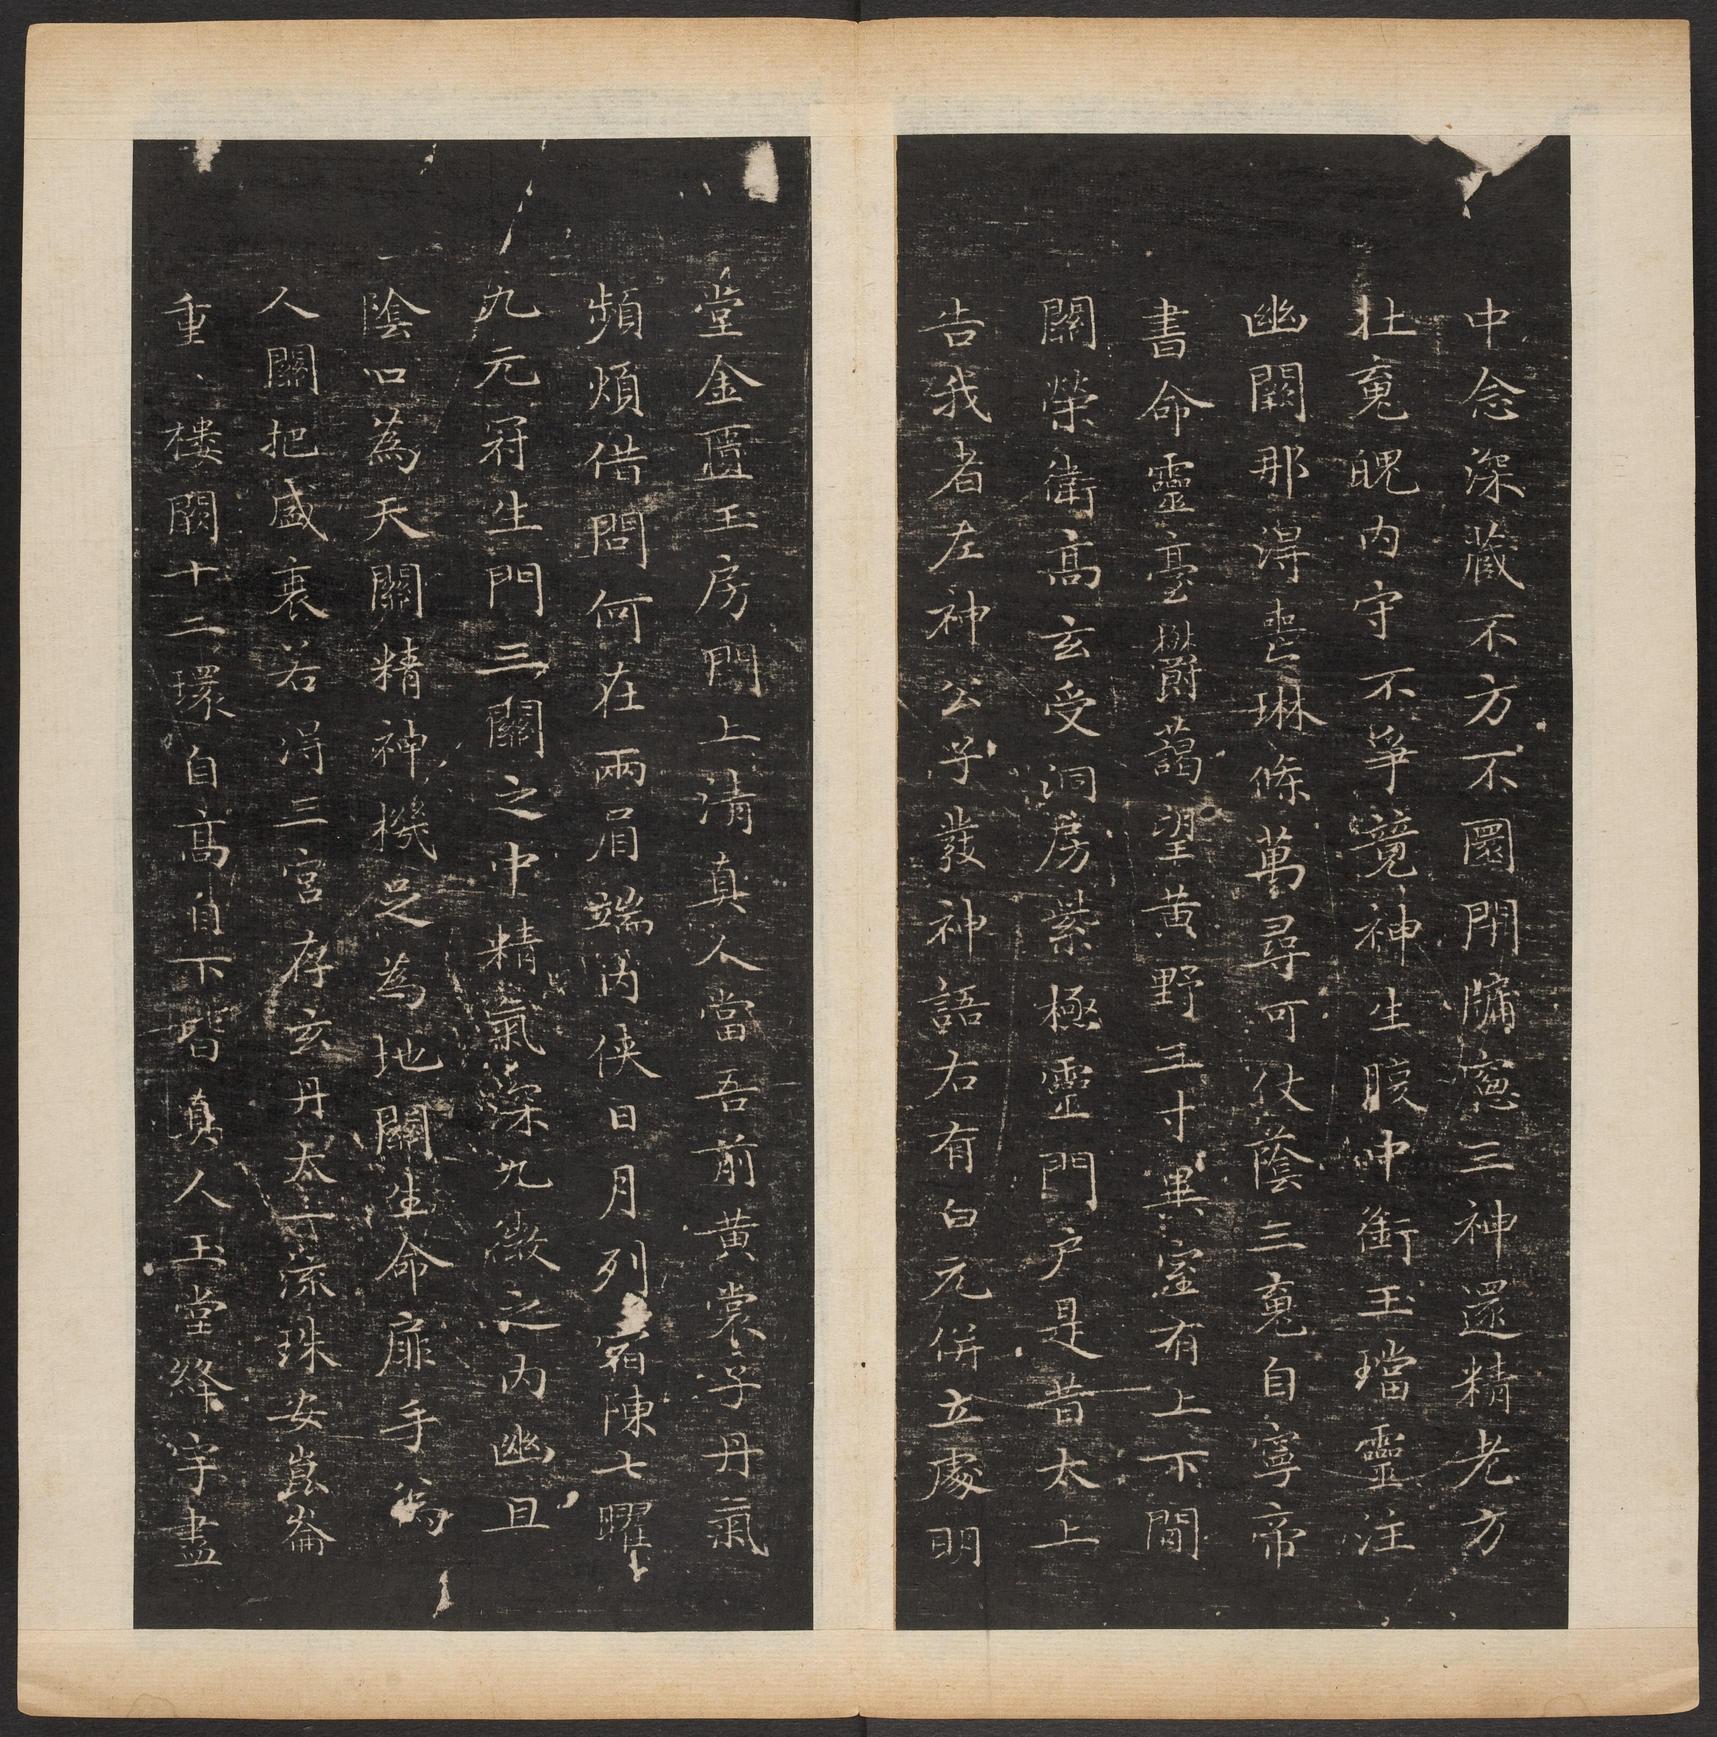 中念深藏不方不圆閇牖窻三神還精老方
壯䰟魄内守不爭競神生腹中銜玉璫靈注
幽闕那得喪琳條萬尋可仗蔭三䰟自寧帝
書命靈臺欝藹望黄野三寸異室有上下間
關榮衛高玄受洞房紫極靈門户是昔太上
告我者左神公子發神語右有白元併立處明
堂金匱玉房間上清真人當吾前黄裳子丹氣
頻煩借問何在兩眉端内俠日月列宿陳七曜
九元冠生門三關之中精氣深九微之内幽且
陰口為天關精神機足為地關生命扉手為
人關把盛衰若得三宫存玄丹太一流珠安崑崙
重重樓閣十二環自高自下皆真人玉堂絳宇盡